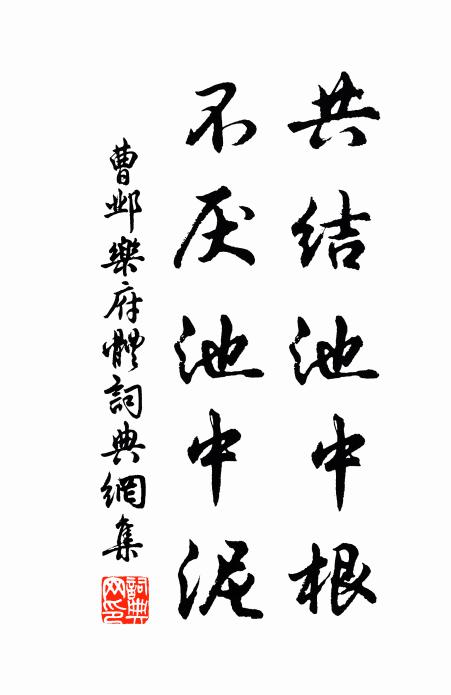 共结池中根
不厌池中泥
曹邺樂府體詞典網集
詞典網印